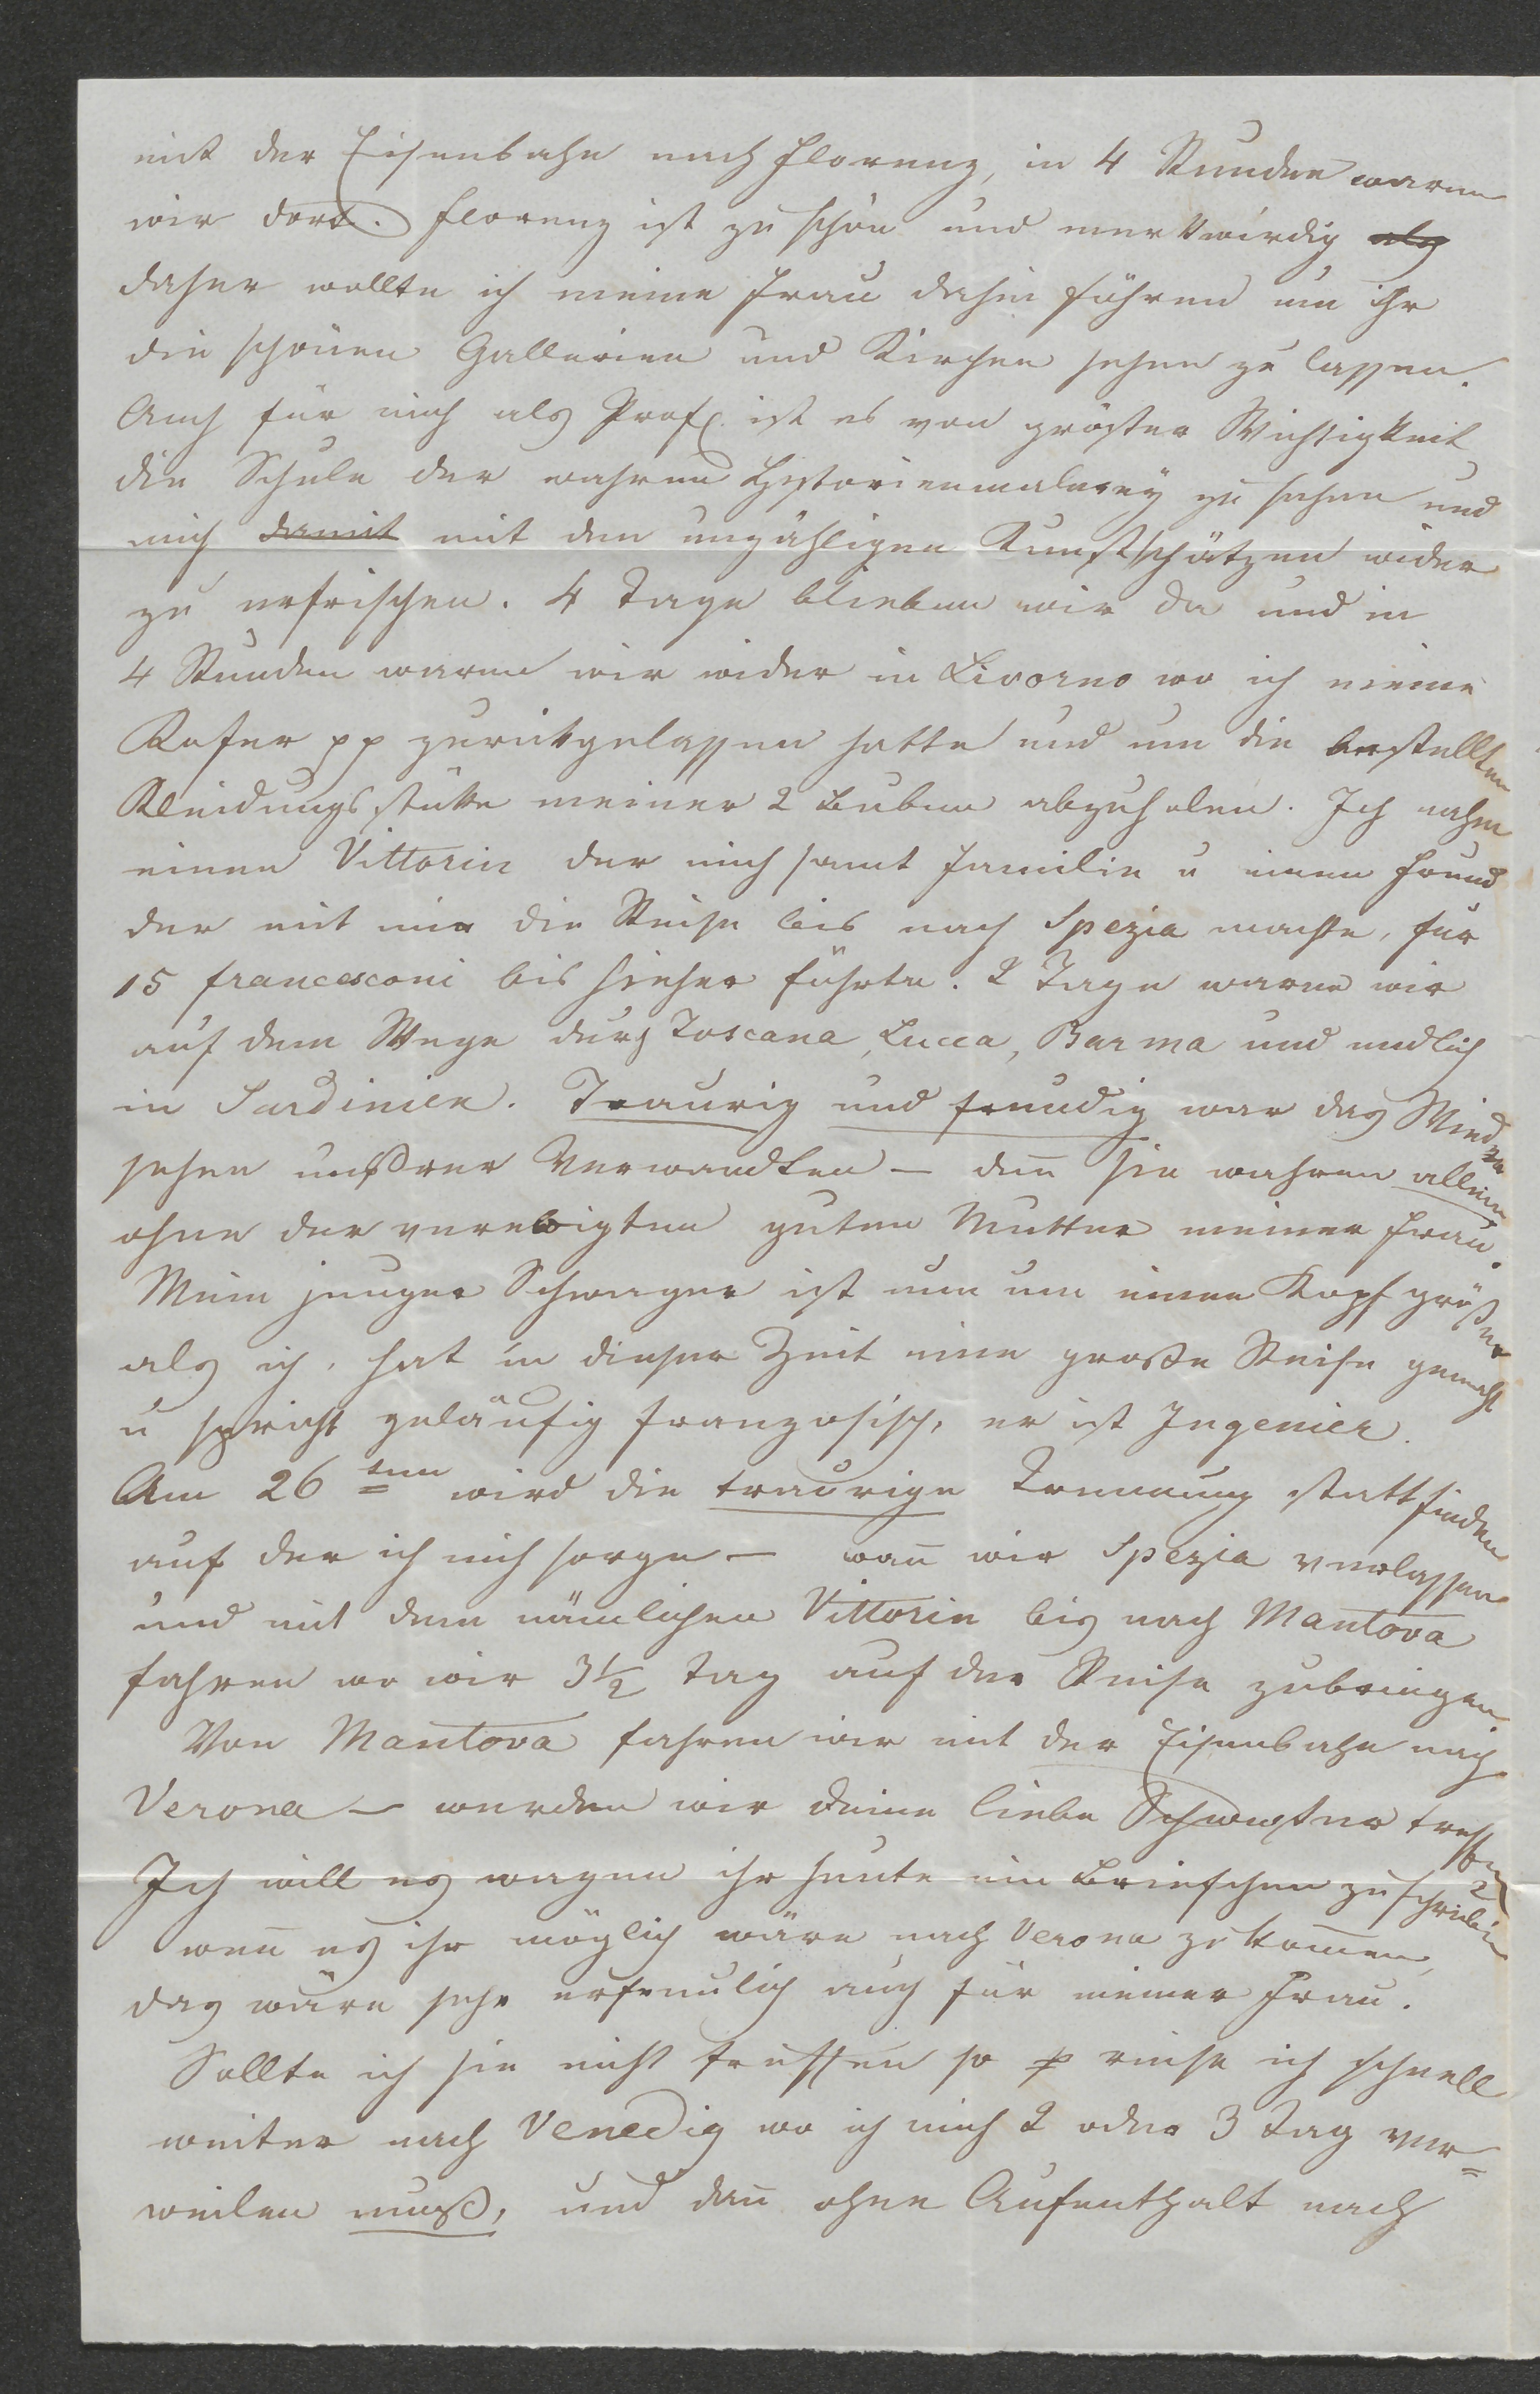 mit der Eisenbahn nach Florenz, in 4 Stunden waren
wir dort. Florenz ist zu schön und merkwirdig als
daher wollte ich meine Frau dahin führen um ihr
die schönen Gallerien und Kirchen sehen zu lassen.
Auch für mich als Prof. ist es von gröster Wichtigkeit
die Schule der wahren Historienmalerey zu sehen und
mich damit mit den unzähligen Kunstschätzen wider
zu erfrischen. 4 Tage blieben wir da und in
4 Stunden waren wir wider in Livorno wo ich meine
Kofer pp zurückgelassen hatte und um die bestellten
Kleidungsstüke meiner 2 Buben abzuholen. Ich nahm
einen Vittorin der mich samt Familie u einen Freund
der mit mir die Reise bis nach Spezia machte, für
15 francesconi bis hieher führte. 2 Tage waren wir
auf dem Wege durch Toscana, Lucca, Barma und endlich
in Sardinien. Traurig und freudig war das Wieder
sehen unsrer Verwandten – den̄ sie wahren allein
ohne der verewigten guten Mutter meiner Frau.
Mein junger Schwager ist nun um einen Kopf größer
als ich, hat in dieser Zeit eine große Reise gemacht
u spricht geläufig französisch, er ist Ingenier.
Am 26ten wird die traurige Trennung stattfinden
auf der ich mich sorge – wan̄ wir Spezia verlassen
und mit dem nämlichen Vittorin bis nach Mantova
fahren wo wir 3½ Tag auf der Reise zubringen.
Von Mantova fahren wir mit der Eisenbahn nach
Verona – werden wir deine liebe Schwester treffen?
Ich will es wagen ihr heute ein Briefchen zu schreiben
wen̄ es ihr möglich wäre nach Verona zu kom̄en,
das wäre sehr erfreulich auch für meiner Frau.
Sollte ich sie nicht treffen so reise ich schnell
weiter nach Venedig wo ich mich 2 oder 3 Tag ver=
weilen muß, und dan̄ ohne Aufenthalt nach